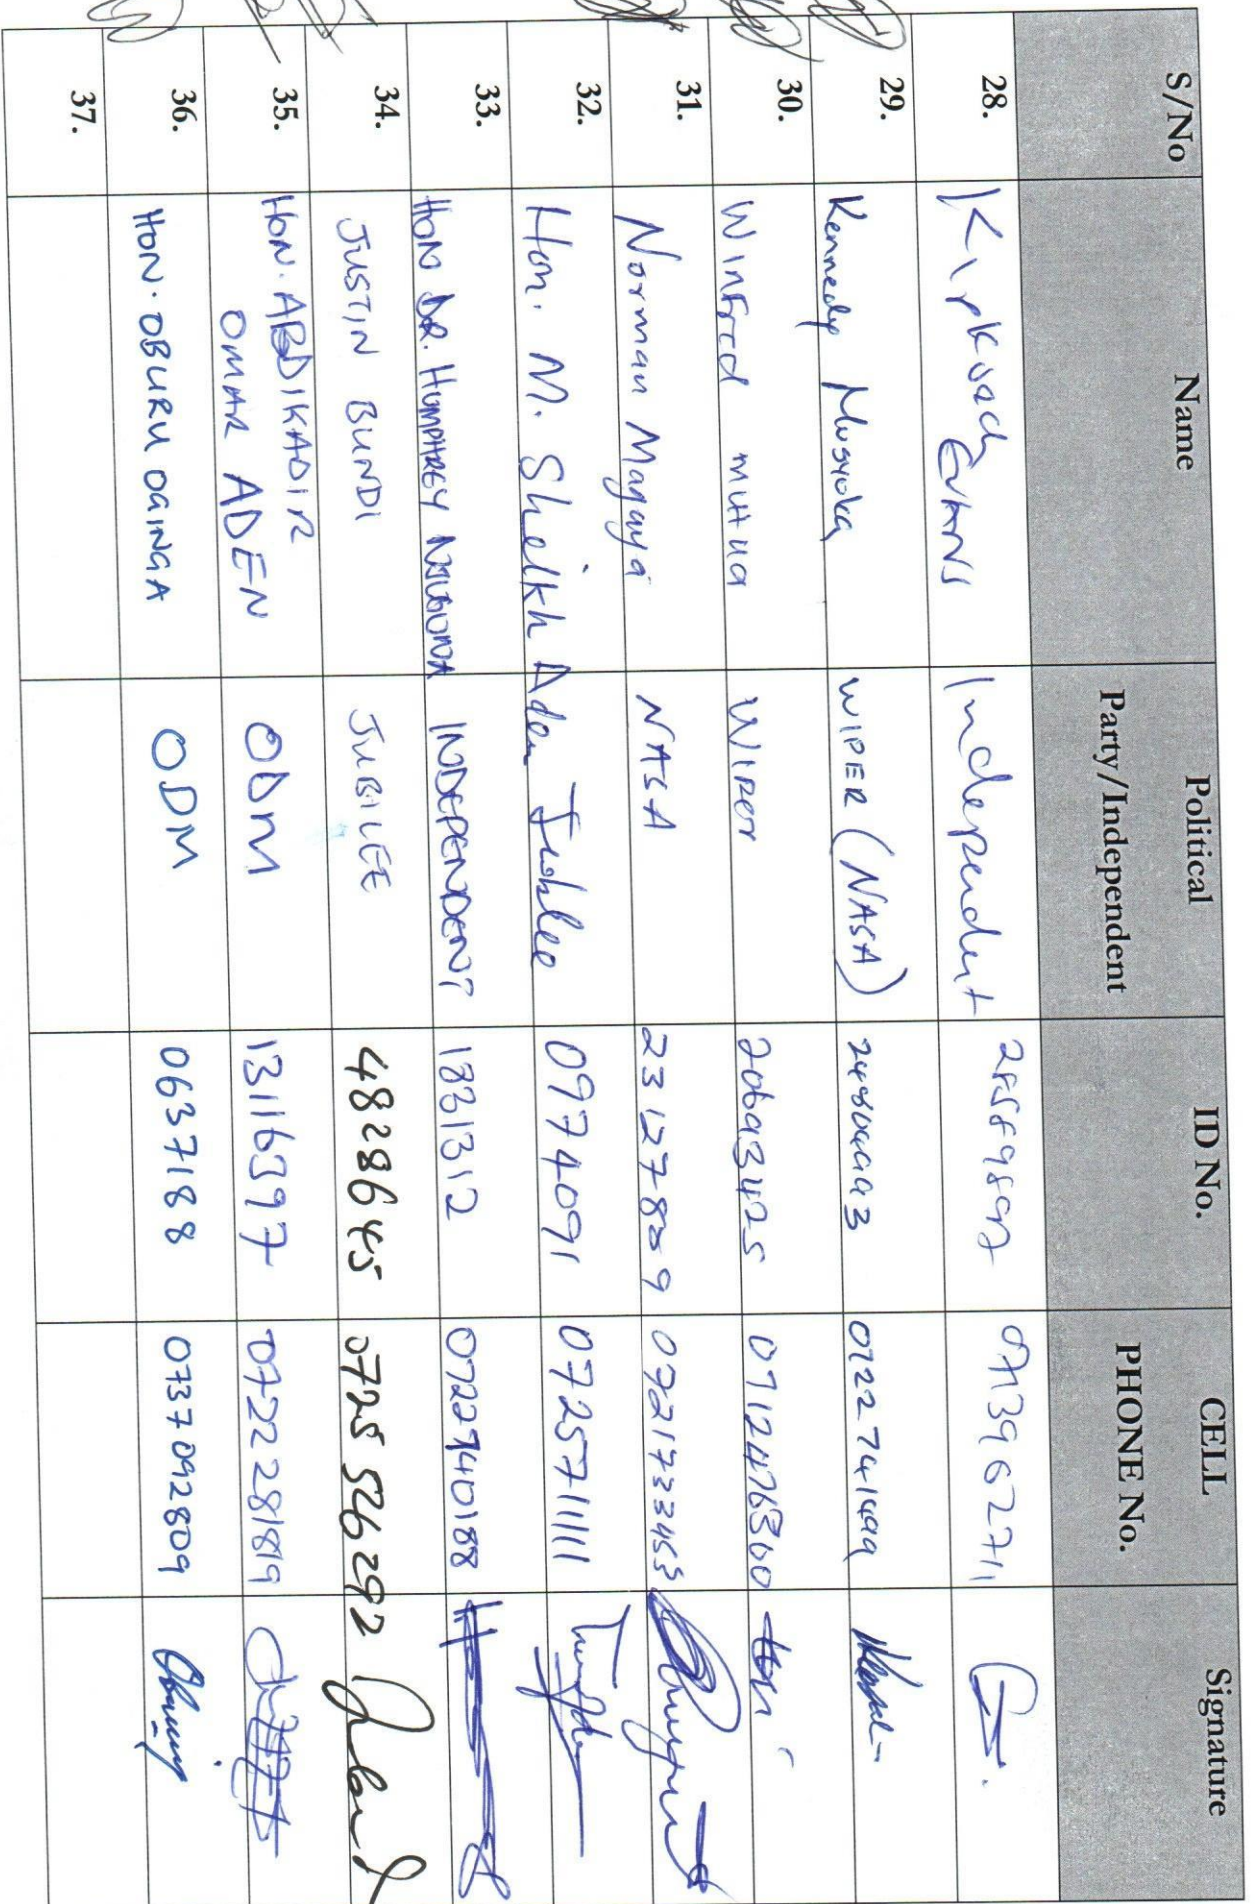 S/No Name Political Party/Independent ID No. CELL PHONE No. Signature
28. EVANS Independent 0713962711
29. Kennedy Musyoka WIPER (NASA) 0722741499
30. Winfred Mutua Wiper 20693425 0712476300
31. Norman Magaya NASA 23127809 0721733453
32. Hon. M. Sheikh Aden Jubilee 09774091 0725711111
33. HON DR. HUMPHREY INDEPENDENT 1831312 0722940188
34. JUSTIN BUNDI JUBILEE 48286 45 0725 526292
35. HON. ABDIKADIR OMAR ADEN ODM 13116397 0722281819
36. HON. OBURU OGINGA ODM 0637188 0737092809
37.